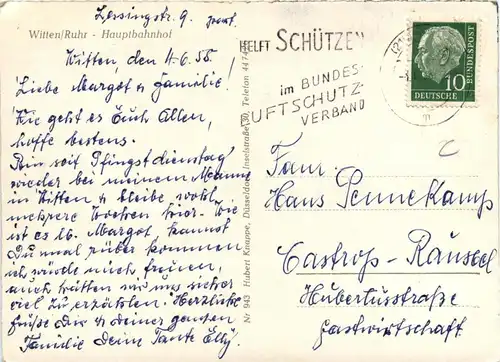 Lessingstr. 9.
Witten/Ruhr - Hauptbahnhof
Witten, den 4.6.58.
Liebe Margot & Familie!
Wie geht es Euch Allen,
hoffe bestens.
Bin seit Pfingstdienstag
wieder bei meinem Manne
in Witten & bleibe wohl
mehrere Wochen hier. Wie
ist es lb. Margot, kannst
Du mal rüber kommen
ich würde mich freuen,
auch hätten wir uns sicher
viel zu erzählen. Herzliche
Grüße Dir & deiner ganzen
Familie Deine Tante Elly.
Nr. 943 Hubert Knappe, Düsseldorf, Inselstraße 30, Telefon
HELFT SCHÜTZEN
im BUNDES-
LUFTSCHUTZ-
VERBAND
DEUTSCHE
BUNDESPOST
10
Fam.
Hans Pennekamp
Castrop-Rauxel
Hubertusstraße
Gastwirtschaft